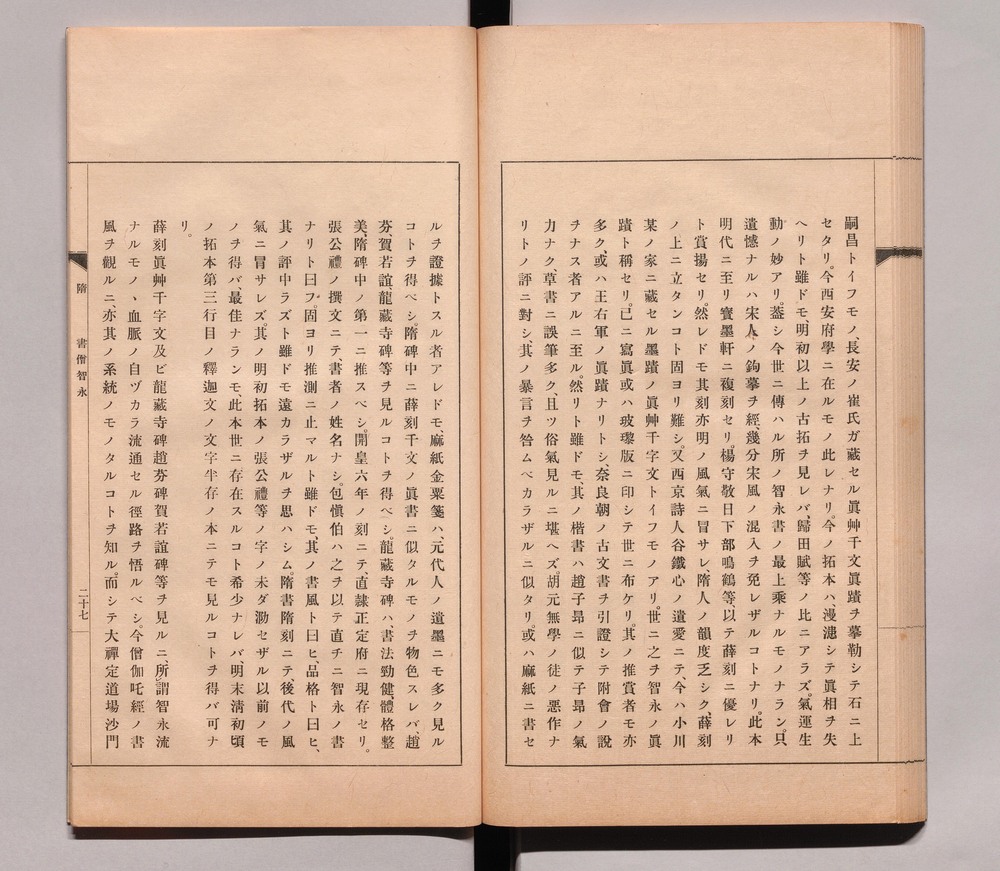 嗣昌トイフモノ、長安ノ崔氏ガ藏セル眞艸千文眞蹟ヲ摹勒シテ石ニ上
セタリ。今西安府學ニ在ルモノ此レナリ。今ノ拓本ハ、漫漶シテ眞相ヲ失
ヘリト雖ドモ、明初以上ノ古拓ヲ見レバ、歸田賦等ノ比ニアラズ。氣運生
動ノ妙アリ。蓋シ今世ニ傳ハル所ノ智永書ノ最上乘ナルモノナラン。只
遺憾ナルハ宋人ノ鉤摹ヲ經、幾分宋風ノ混入ヲ免レザルコトナリ。此本
明代ニ至リ寶墨軒ニ複刻セリ。楊守敬日下部鳴鶴等、以テ薛刻ニ優レリ
ト賞揚セリ。然レドモ其刻亦明ノ風氣ニ冒サレ、隋人ノ韻度乏シク、薛刻
ノ上ニ立タンコト固ヨリ難シ。又西京詩人谷鐵心ノ遺愛ニテ、今ハ小川
某ノ家ニ藏セル墨蹟ノ眞艸千字文トイフモノアリ。世ニ之ヲ智永ノ眞
蹟ト稱セリ。已ニ寫眞或ハ玻璨版ニ印シテ世ニ布ケリ。其ノ推賞者モ亦
多ク、或ハ王右軍ノ眞蹟ナリトシ、奈良朝ノ古文書ヲ引證シテ附會ノ說
ヲナス者アルニ至ル。然リト雖ドモ、其ノ楷書ハ趙子昂ニ似テ子昂ノ氣
力ナク、草書ニ誤筆多ク、且ツ俗氣見ルニ堪ヘズ。胡元無學ノ徒ノ惡作ナ
リトノ評ニ對シ、其ノ暴言ヲ咎ムベカラザルニ似タリ。或ハ麻紙ニ書セ
ルヲ證據トスル者アレドモ、麻紙金粟箋ハ、元代人ノ遺墨ニモ多ク見ル
コトヲ得ベシ。隋碑中ニ薛刻千文ノ眞書ニ似タルモノヲ物色スレバ、趙
芬、賀若誼龍藏寺碑等ヲ見ルコトヲ得ベシ。龍藏寺碑ハ、書法勁健、體格整
美、隋碑中ノ第一ニ推スベシ。開皇六年ノ刻ニテ、直隷正定府ニ現存セリ。
張公禮ノ撰文ニテ、書者ノ姓名ナシ。包愼伯ハ之ヲ以テ直チニ智永ノ書
ナリト曰フ。固ヨリ推測ニ止マルト雖ドモ、其ノ書風ト曰ヒ、品格ト曰ヒ、
其ノ評中ラズト雖ドモ遠カラザルヲ思ハシム。隋書隋刻ニテ後代ノ風
氣ニ冒サレズ。其ノ明初拓本ノ張公禮等ノ字ノ未ダ泐セザル以前ノモ
ノヲ得バ、最佳ナランモ、此本世ニ存在スルコト希少ナレバ、明末淸初頃
ノ拓本第三行目ノ釋迦文ノ文字半存ノ本ニテモ見ルコトヲ得バ可ナ
リ。
薛刻眞艸千字文及ビ龍藏寺碑趙芬碑賀若誼碑等ヲ見ルニ、所謂智永流
ナルモノヽ血脈ノ自ヅカラ流通セル徑路ヲ悟ルベシ。今僧伽吒經ノ書
風ヲ觀ルニ、亦其ノ系統ノモノタルコトヲ知ル。而シテ大禪定道場沙門
隋 書僧智永 二十七